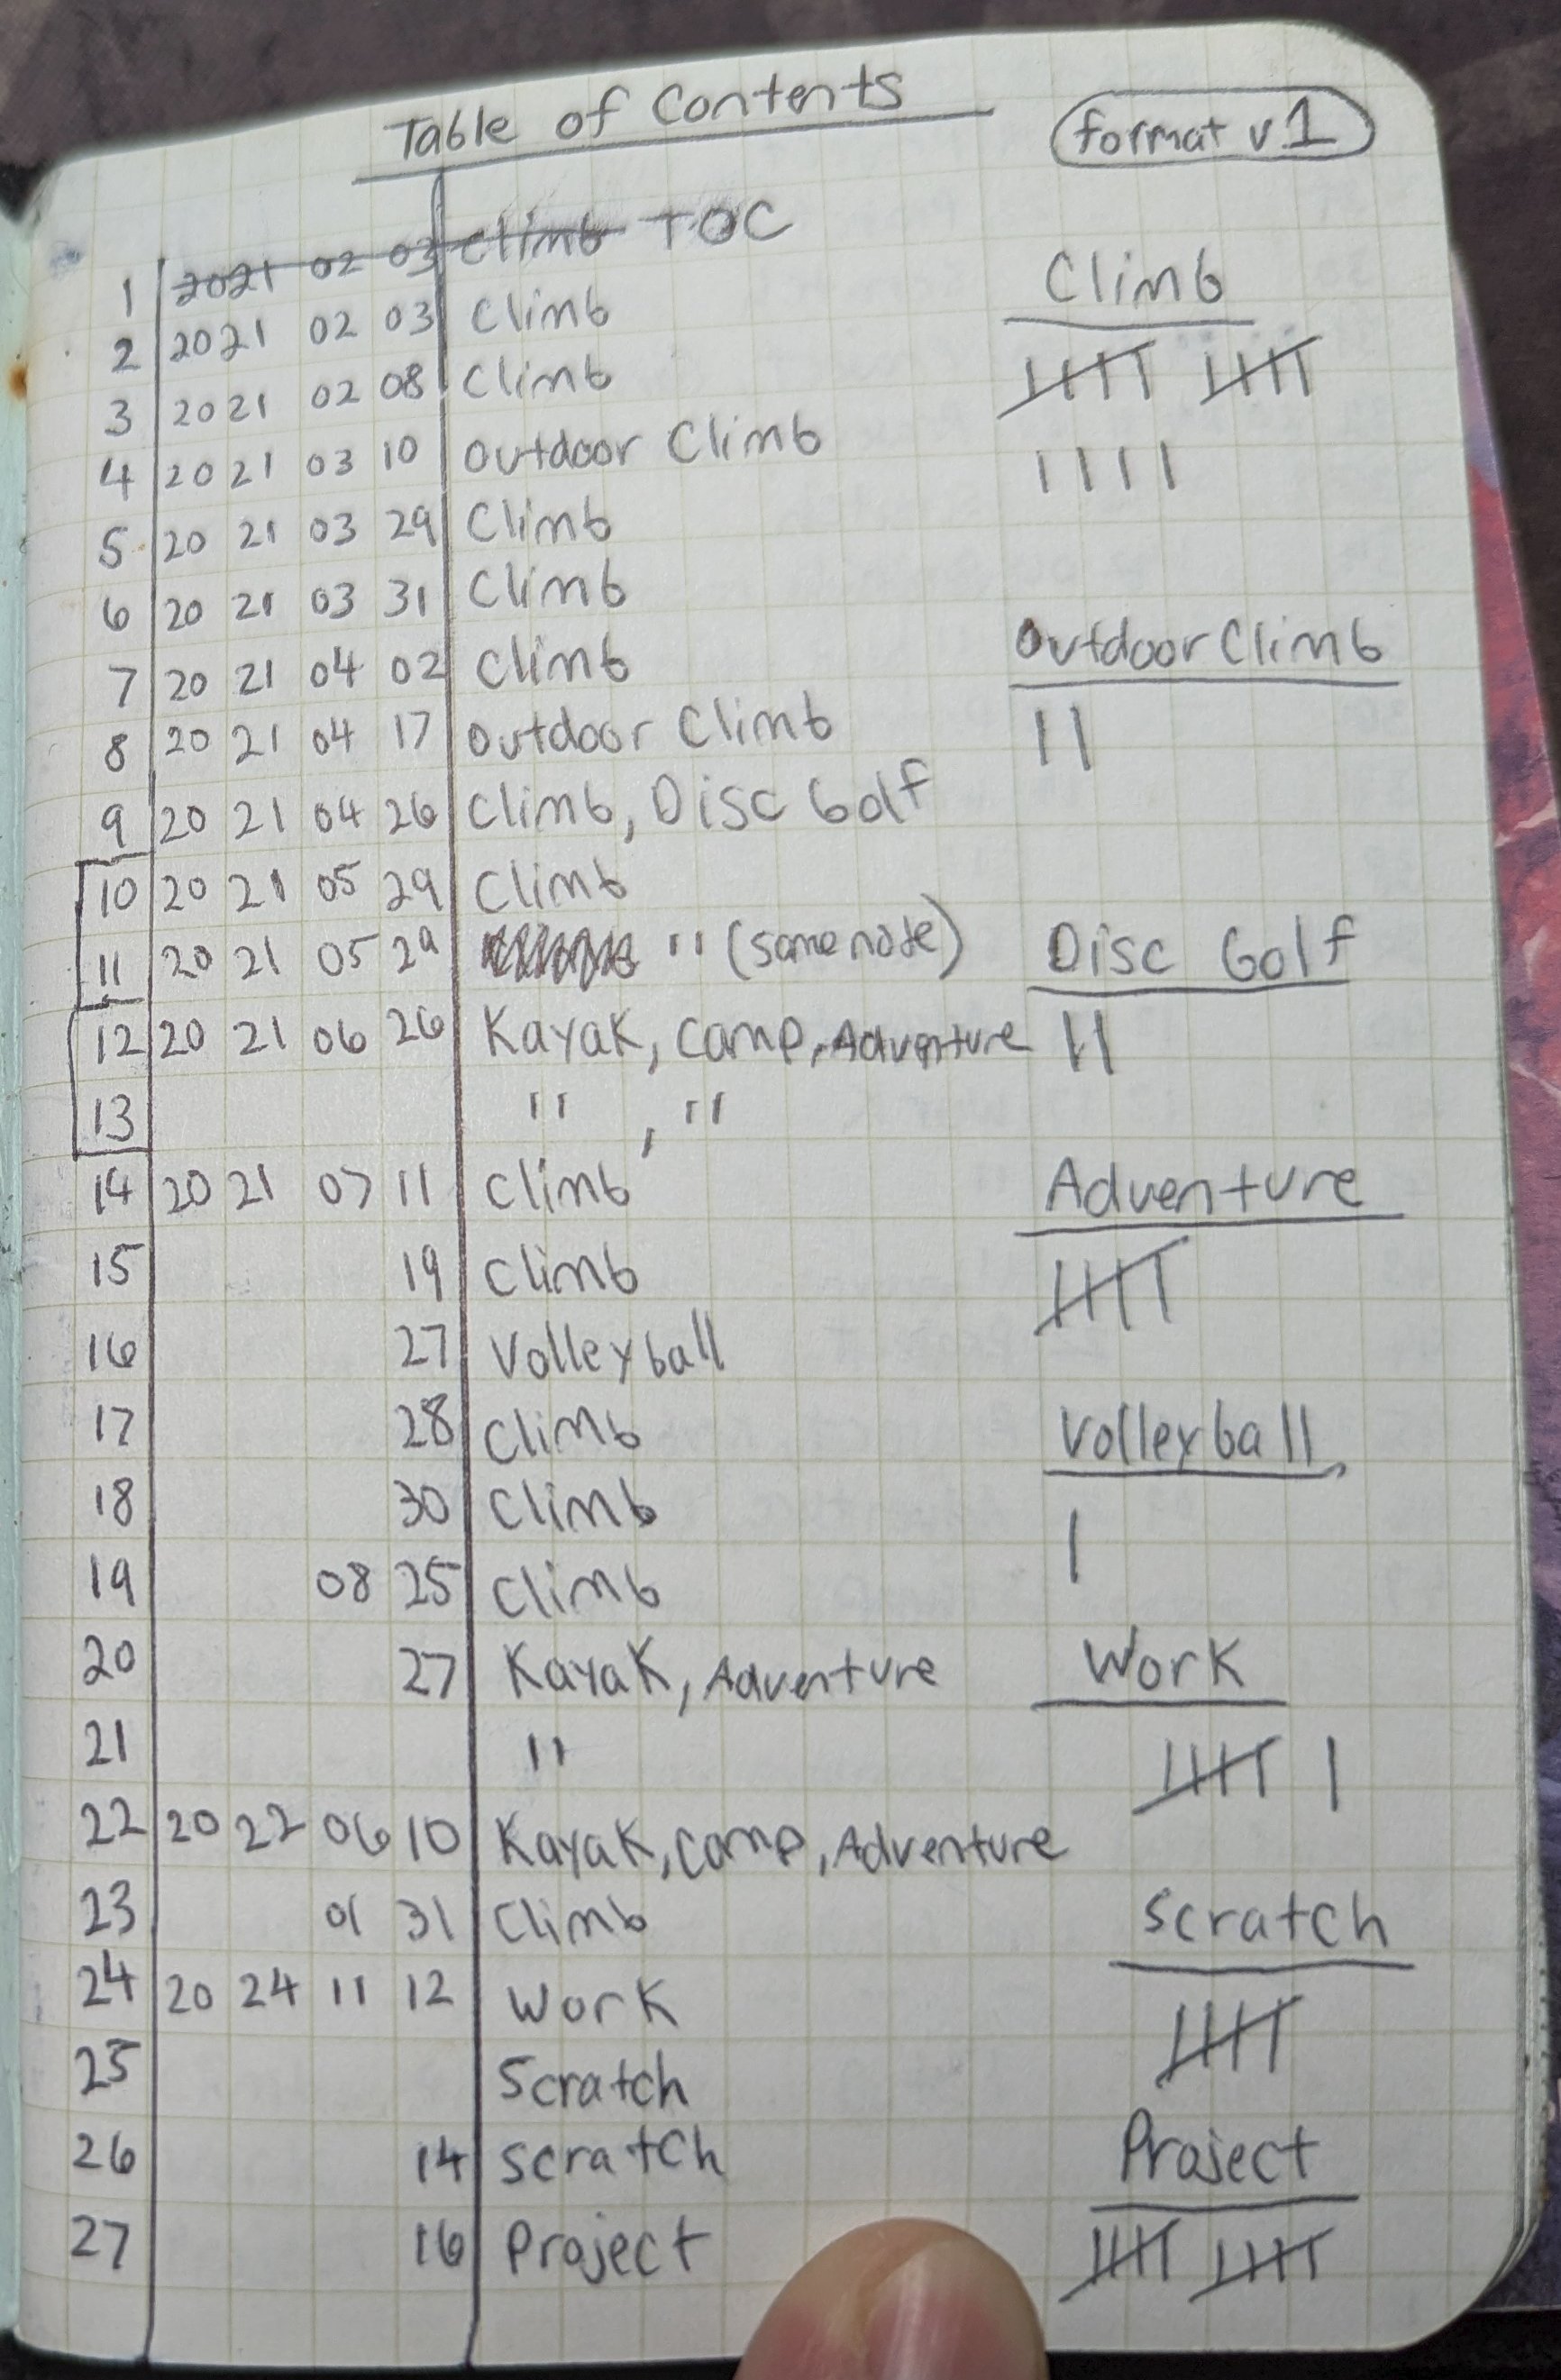 Table of Contents
format v1
1 2021 02 03 Climb TOC
2 2021 02 03 Climb
3 2021 02 08 Climb
4 20 21 03 10 Outdoor Climb
5 20 21 03 29 Climb
6 20 21 03 31 Climb
7 20 21 04 02 Climb
8 20 21 04 17 Outdoor Climb
9 20 21 04 26 Climb, Disc Golf
10 20 21 05 29 Climb
11 20 21 05 29 " (same note)
12 20 21 06 26 Kayak, Camp, Adventure
13 " , "
14 20 21 07 11 Climb
15 19 Climb
16 27 Volleyball
17 28 Climb
18 30 Climb
19 08 25 Climb
20 27 Kayak, Adventure
21 "
22 20 22 06 10 Kayak, Camp, Adventure
23 01 31 Climb
24 20 24 11 12 Work
25 Scratch
26 14 Scratch
27 16 Project
Climb
Outdoor Climb
Disc Golf
Adventure
Volleyball
Work
Scratch
Project